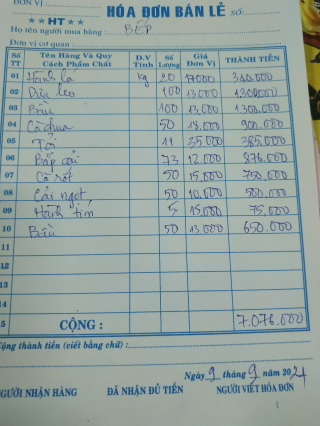 ĐƠN VỊ
HÓA ĐƠN BÁN LẺ SỐ:
★★ HT ★★
Họ tên người mua hàng: BẾP
Đơn vị cơ quan:
Số TT Tên Hàng Và Quy Cách Phẩm Chất Đ.V Tính Số Lượng Giá Đơn Vị THÀNH TIỀN
01 Hành lá kg 20 17000 340.000
02 Dưa leo 100 13000 1300.000
03 Bầu 100 13,000 1300.000
04 Cà chua 50 18.000 900.000
05 Tỏi 11 35,000 385.000
06 Bắp cải 73 12.000 876.000
07 Cà rốt 50 15,000 750.000
08 Cải ngọt 50 10.000 500.000
09 Hành tím 5 15.000 75.000
10 Bầu 50 13.000 650.000
11
12
13
14
15 CỘNG: 7.076.000
Cộng thành tiền (viết bằng chữ):
Ngày 9 tháng 9 năm 2024
NGƯỜI NHẬN HÀNG ĐÃ NHẬN ĐỦ TIỀN NGƯỜI VIẾT HÓA ĐƠN